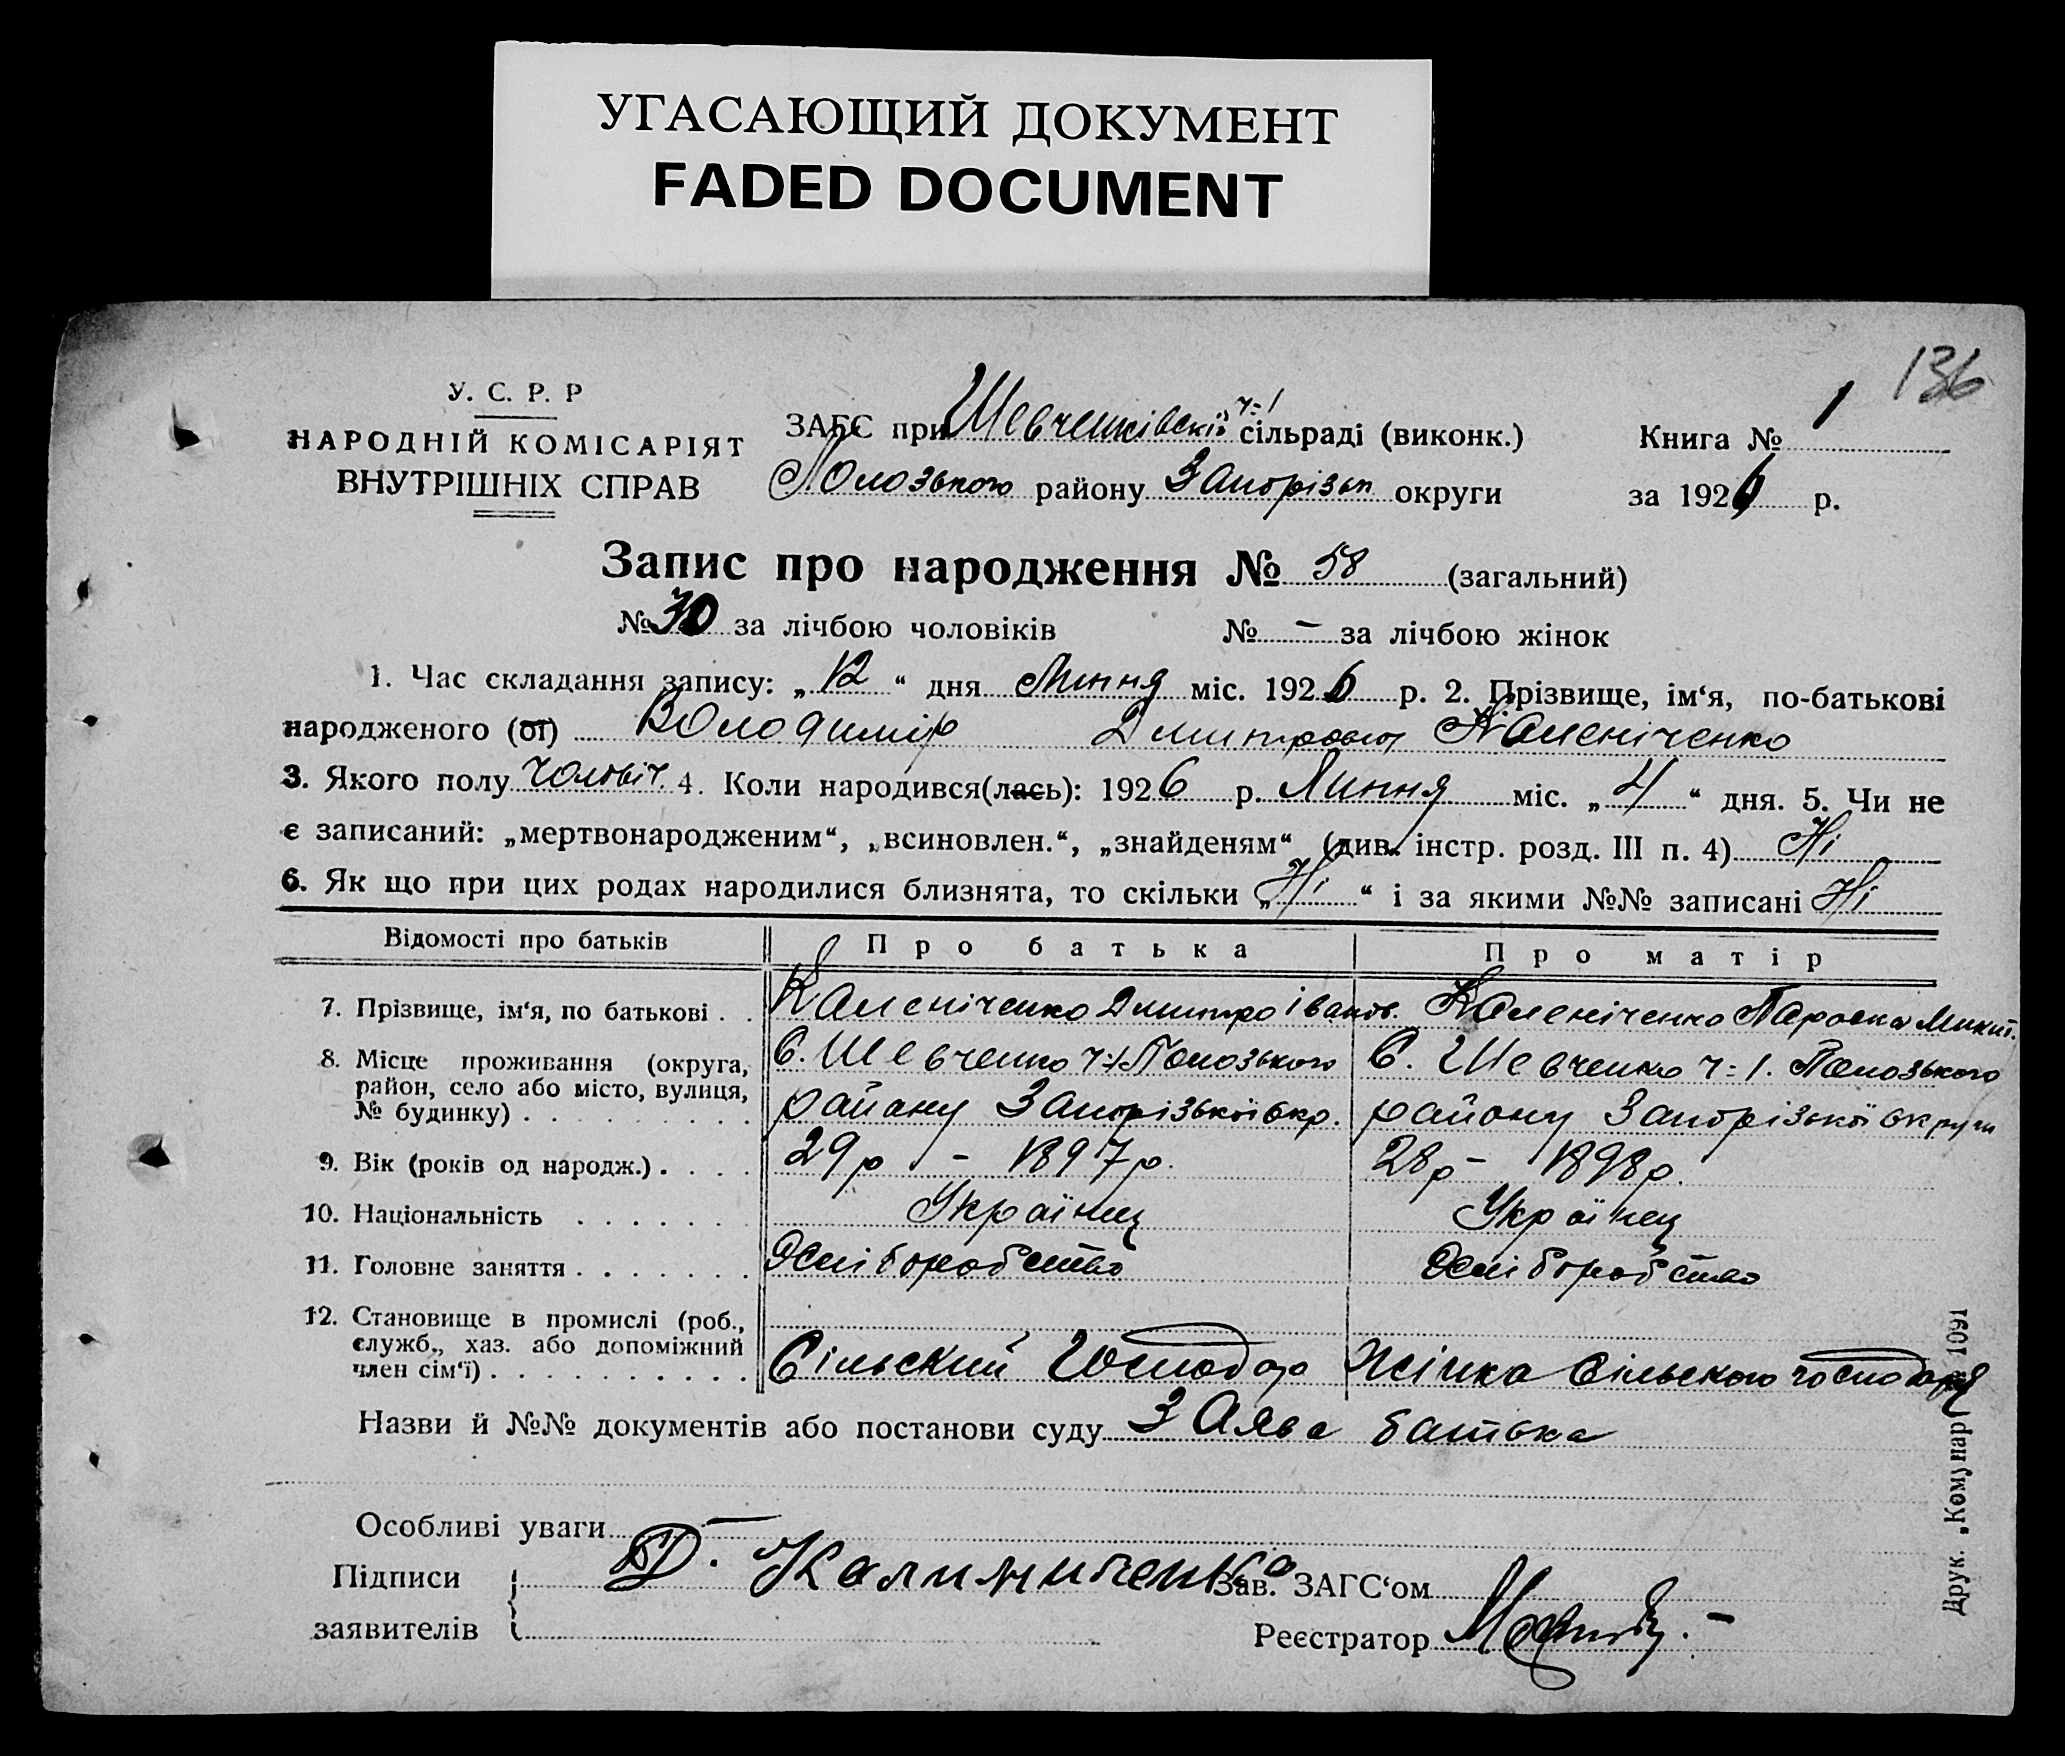 УГАСАЮЩИЙ ДОКУМЕНТ
FADED DOCUMENT
136
У. С. Р. Р
НАРОДНІЙ КОМІСАРІЯТ
ВНУТРІШНІХ СПРАВ
ЗАГС при Шевченківскій ч-1 сільраді (виконк.)
Полозького району Запорізьк округи
Книга № 1
за 1926 р.
Запис про народження № 58 (загальний)
№ 30 за лічбою чоловіків № - за лічбою жінок
1. Час складання запису: „12“ дня Липня міс. 1926 р. 2. Прізвище, ім‘я, по-батькові
народженого (ої) Володимір Дмитрович Каленіченко
3. Якого полу чоловіч. 4. Коли народився(лась): 1926 р. Липня міс. „4“ дня. 5. Чи не
є записаний: „мертвонародженим“, „всиновлен.“, „знайденям“ (див. інстр. розд. III п. 4) Ні
6. Як що при цих родах народилися близнята, то скільки „Ні“ і за якими №№ записані Ні
Відомості про батьків Про батька Про матір
7. Прізвище, ім‘я, по батькові . . Каленіченко Дмитро Іванов. Каленіченко Параска Микит.
8. Місце проживання (округа, район, село або місто, вулиця, № будинку) . . . . . . . . .
С. Шевченко ч-1 Полозького С. Шевченко ч-1. Полозького
району Запорізької окр. району Запорізької округи
9. Вік (років од народж.) . . . . 29р - 1897р. 28р - 1898р.
10. Національність . . . . . . Українец Українец
11. Головне заняття . . . . . . . Хліборобство Хліборобство
12. Становище в промислі (роб., служб., хаз. або допоміжний член сім‘ї) . . . . . . . . . . .
Сільский Господар Жінка Сільского господаря
Назви й №№ документів або постанови суду Заява батька
Особливі уваги —
Підписи
заявителів
Д. Калиниченко
Зав. ЗАГС‘ом
Реєстратор
Друк. „Комунар“ 1091